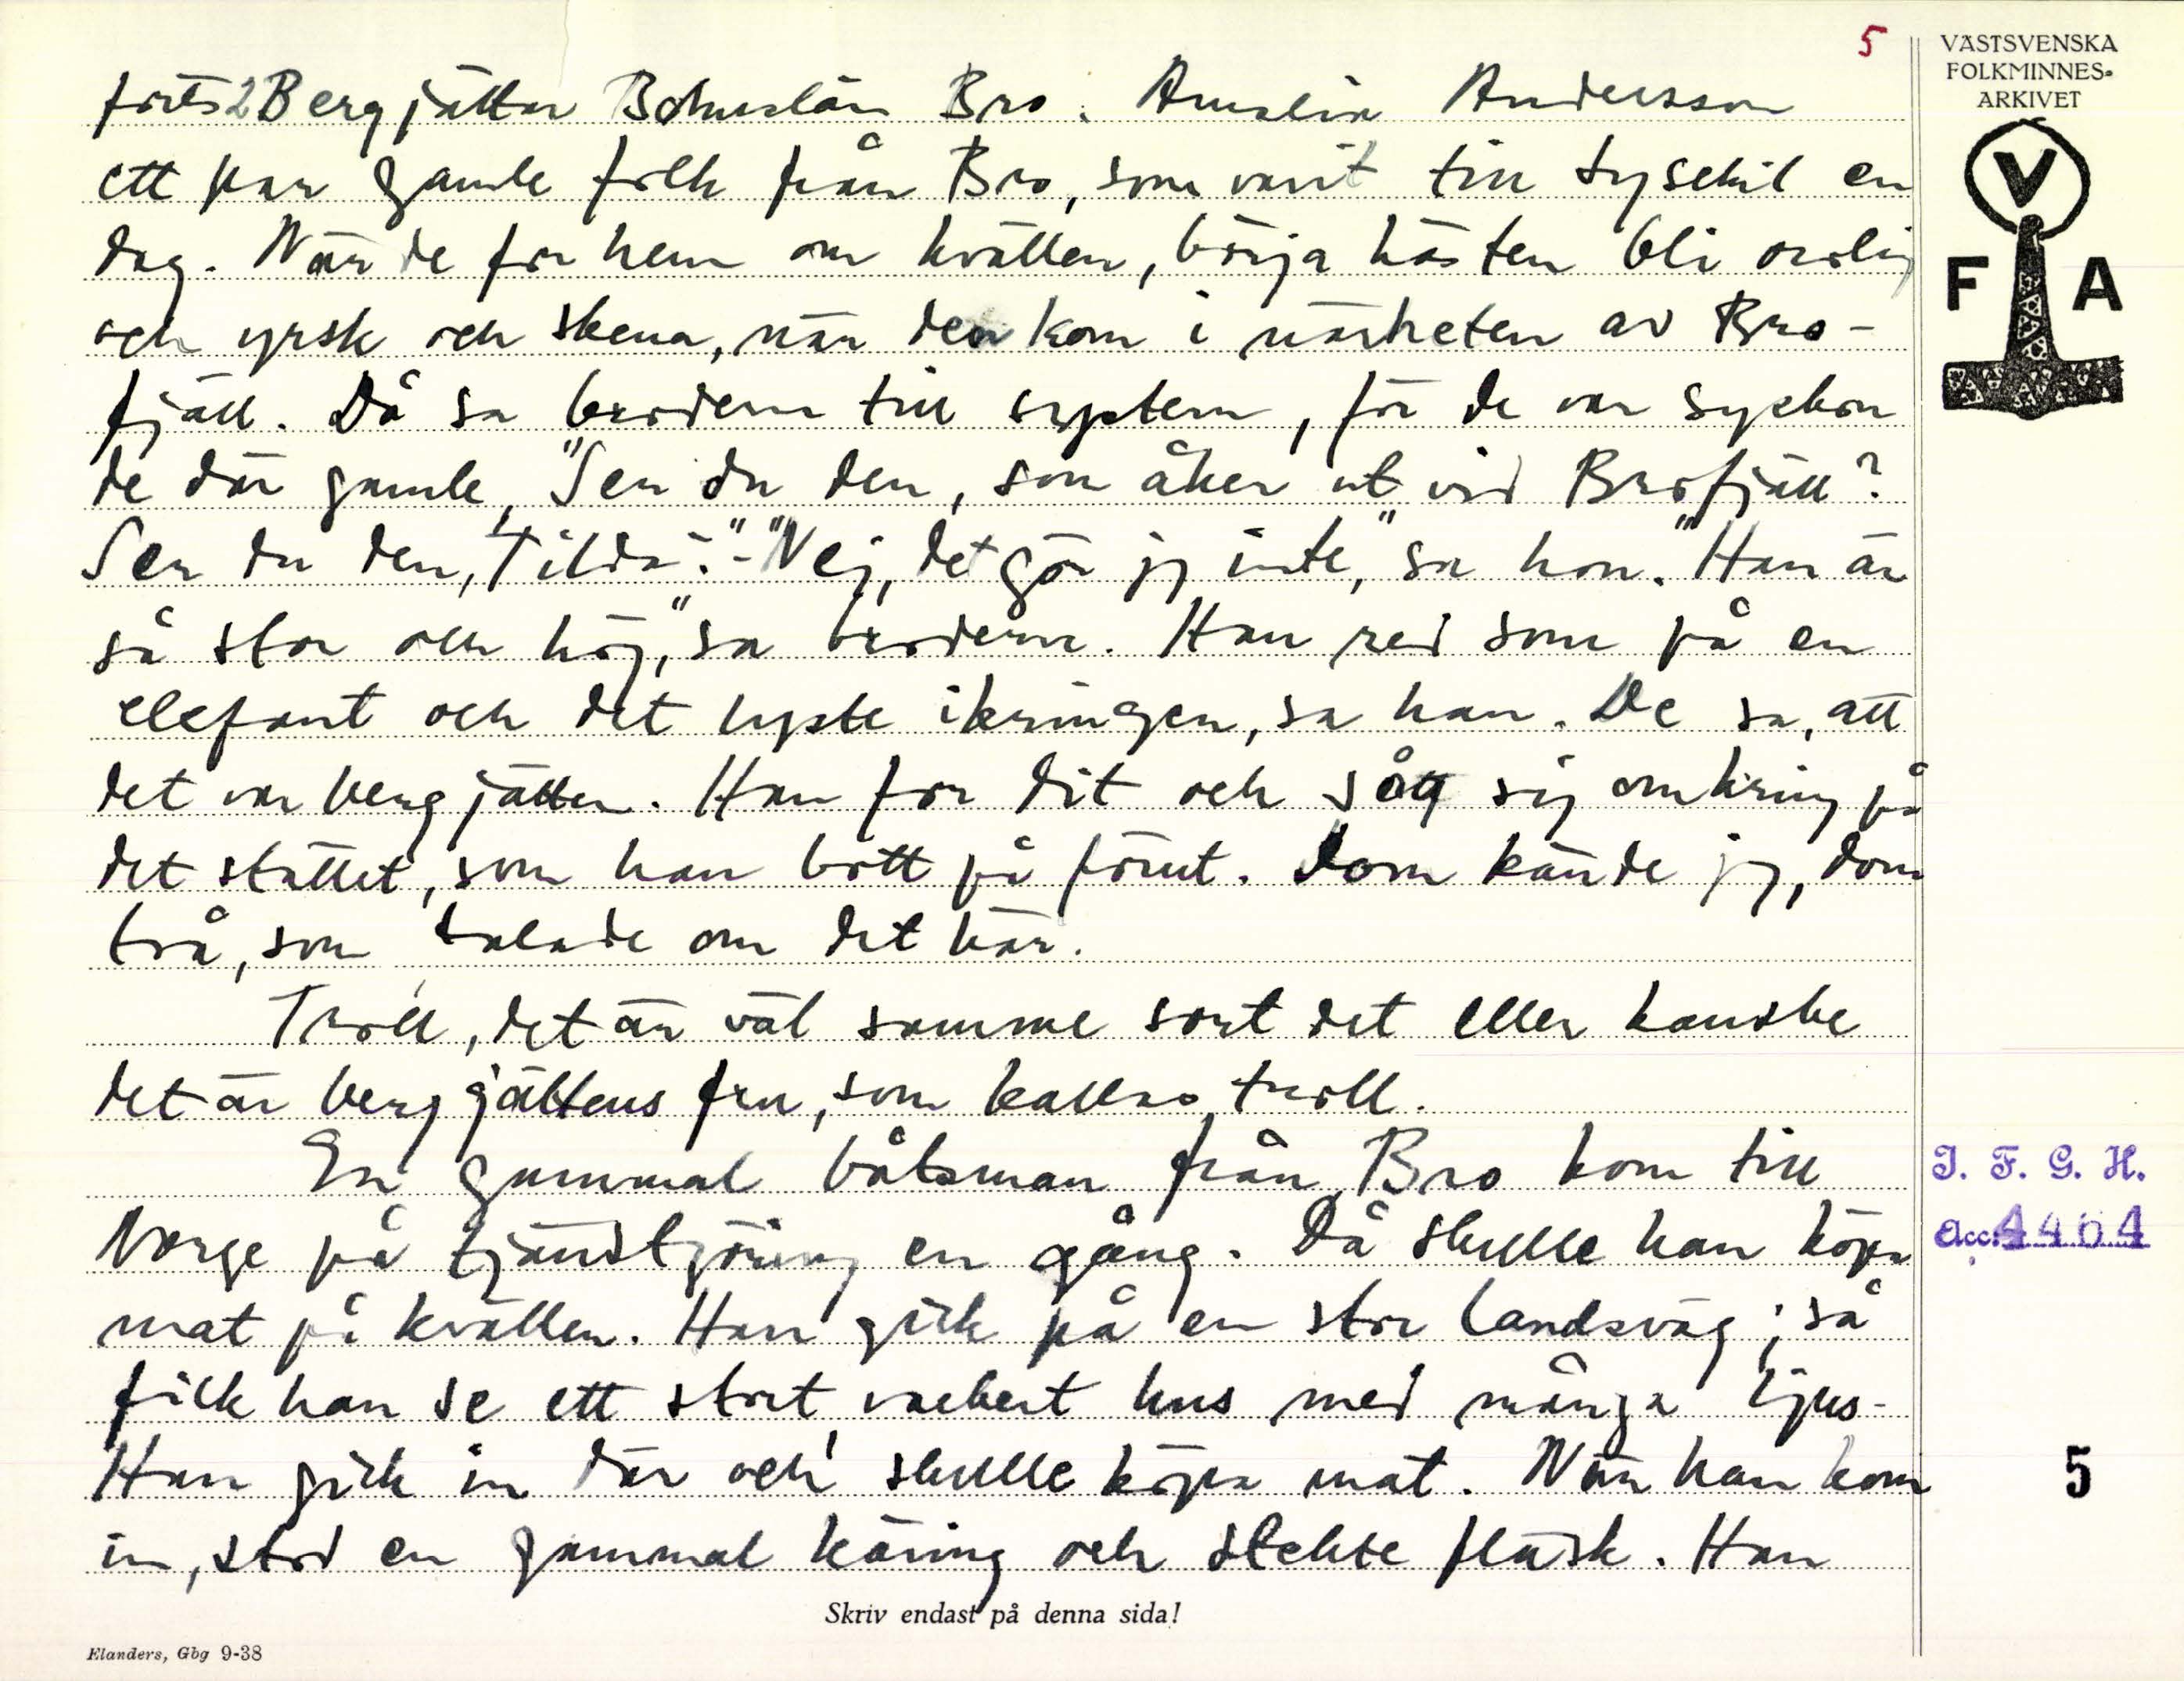 5
VÄSTSVENSKA
FOLKMINNES-
ARKIVET
V
F A
forts 2 Bergjättar Bohuslän Bro. Amalia Andersson
ett par gamle folk från Bro, som varit till Lysekil en
dag. När de for hem om kvällen, börja hästen bli orolig
och yrsk och skena, när den kom i närheten av Bro-
fjäll. Då sa brodern till systern, för de var syskon
de där gamle, "Ser du den, som åker ut vid Brofjäll?
Ser du den, Tilda."-"Nej, det gör jg inte," sa hon. "Han är
så stor och hög," sa brodern. Han red som på en
elefant och det lyste ikringen, sa han. De sa, att
det var bergjätten. Han for dit och såg sig omkring på
det stället, som han bott på förut. Dom kände jg, dom
två, som talade om det här.
Troll, det är väl samme sort det eller kanske
det är bergjättens fru, som kallas troll.
En gammal båtsman från Bro kom till
Norge på tjänstgöring en gång. Då skulle han köpa
mat på kvällen. Han gick på en stor landsväg; så
fick han se ett stort, vackert hus med många ljus.
Han gick in där och skulle köpa mat. När han kom
in, stod en gammal käring och stekte fläsk. Han
I. F. G. H.
Acc. 4464
5
Skriv endast på denna sida!
Elanders, Gbg 9-38